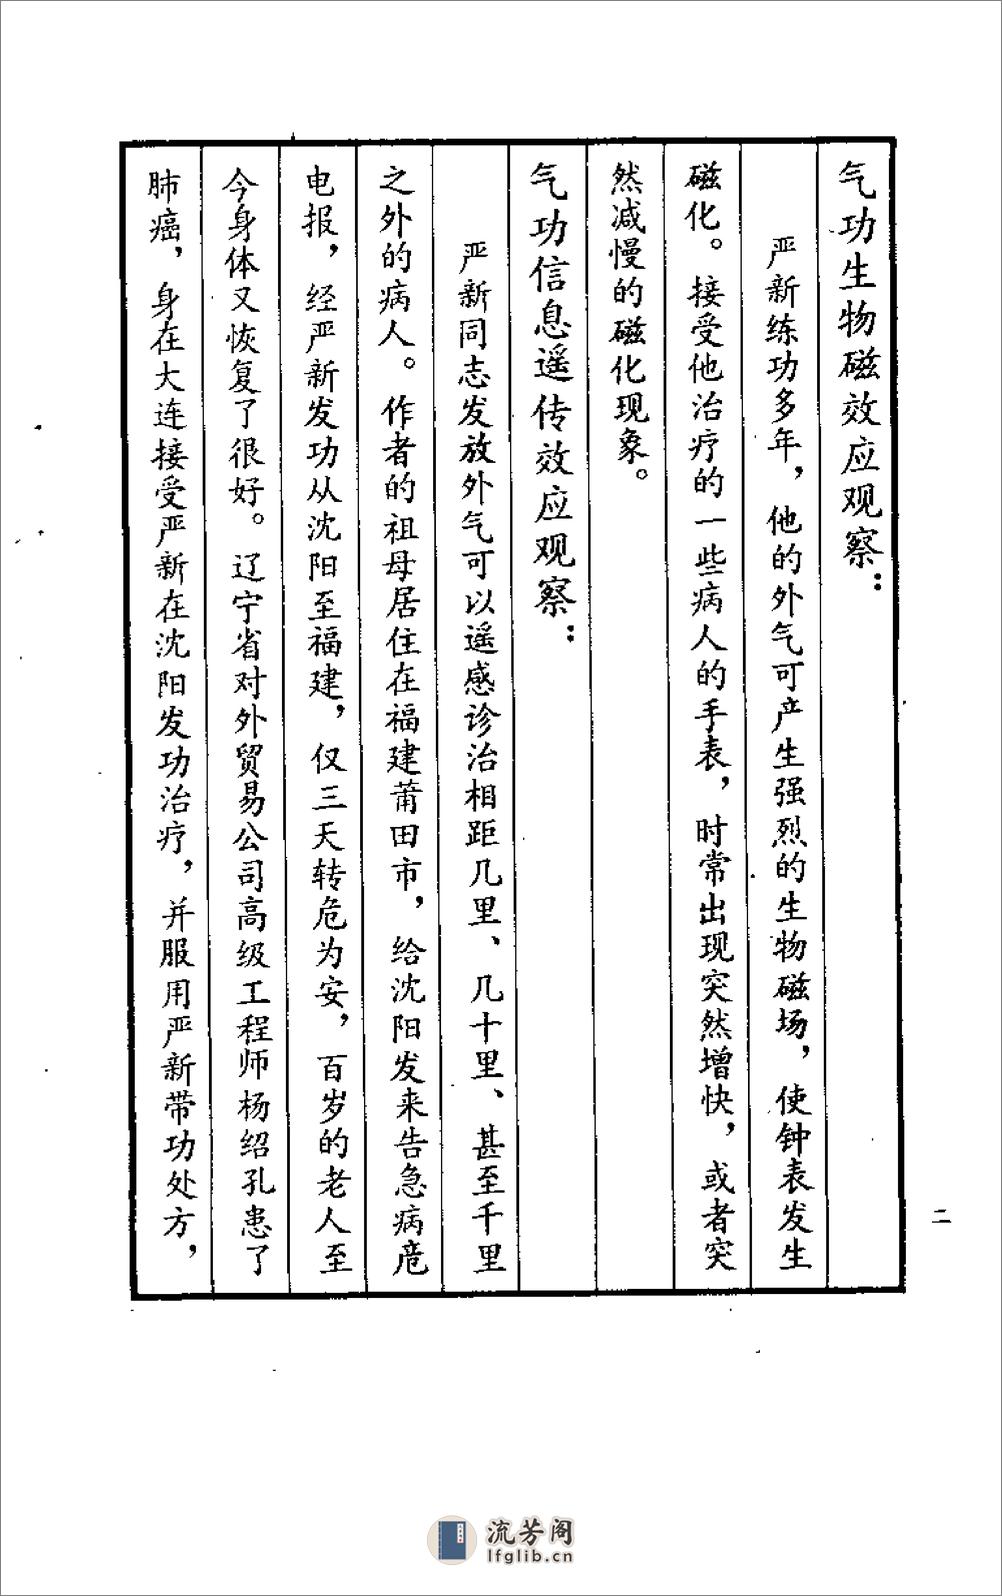 气功生物磁效应观察：
严新练功多年，他的外气可产生强烈的生物磁场，使钟表发生
磁化。接受他治疗的一些病人的手表，时常出现突然增快，或者突
然减慢的磁化现象。
气功信息遥传效应观察：
严新同志发放外气可以遥感诊治相距几里、几十里、甚至千里
之外的病人。作者的祖母居住在福建莆田市，给沈阳发来告急病危
电报，经严新发功从沈阳至福建，仅三天转危为安，百岁的老人至
今身体又恢复了很好。辽宁省对外贸易公司高级工程师杨绍孔患了
肺癌，身在大连接受严新在沈阳发功治疗，并服用严新带功处方，
二
流芳阁
lfglib.cn